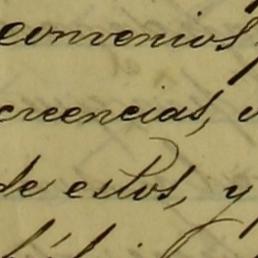 convenios
creencias,
de estos, y